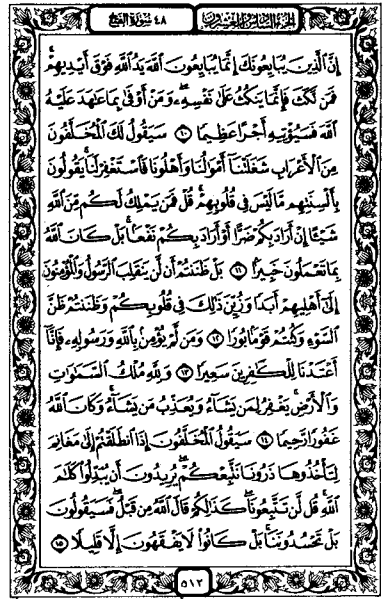 الجزء السادس والعشرون ٤٨ سورة الفتح
إِنَّ ٱلَّذِينَ يُبَايِعُونَكَ إِنَّمَا يُبَايِعُونَ ٱللَّهَ يَدُ ٱللَّهِ فَوْقَ أَيْدِيهِمْ
فَمَن نَّكَثَ فَإِنَّمَا يَنكُثُ عَلَىٰ نَفْسِهِۦ وَمَنْ أَوْفَىٰ بِمَا عَٰهَدَ عَلَيْهُ
ٱللَّهَ فَسَيُؤْتِيهِ أَجْرًا عَظِيمًا ١٠ سَيَقُولُ لَكَ ٱلْمُخَلَّفُونَ
مِنَ ٱلْأَعْرَابِ شَغَلَتْنَآ أَمْوَٰلُنَا وَأَهْلُونَا فَٱسْتَغْفِرْ لَنَا يَقُولُونَ
بِأَلْسِنَتِهِم مَّا لَيْسَ فِى قُلُوبِهِمْ قُلْ فَمَن يَمْلِكُ لَكُم مِّنَ ٱللَّهِ
شَيْـًٔا إِنْ أَرَادَ بِكُمْ ضَرًّا أَوْ أَرَادَ بِكُمْ نَفْعًۢا بَلْ كَانَ ٱللَّهُ
بِمَا تَعْمَلُونَ خَبِيرًۢا ١١ بَلْ ظَنَنتُمْ أَن لَّن يَنقَلِبَ ٱلرَّسُولُ وَٱلْمُؤْمِنُونَ
إِلَىٰٓ أَهْلِيهِمْ أَبَدًا وَزُيِّنَ ذَٰلِكَ فِى قُلُوبِكُمْ وَظَنَنتُمْ ظَنَّ
ٱلسَّوْءِ وَكُنتُمْ قَوْمًۢا بُورًا ١٢ وَمَن لَّمْ يُؤْمِنۢ بِٱللَّهِ وَرَسُولِهِۦ فَإِنَّآ
أَعْتَدْنَا لِلْكَٰفِرِينَ سَعِيرًا ١٣ وَلِلَّهِ مُلْكُ ٱلسَّمَٰوَٰتِ
وَٱلْأَرْضِ يَغْفِرُ لِمَن يَشَآءُ وَيُعَذِّبُ مَن يَشَآءُ وَكَانَ ٱللَّهُ
غَفُورًا رَّحِيمًا ١٤ سَيَقُولُ ٱلْمُخَلَّفُونَ إِذَا ٱنطَلَقْتُمْ إِلَىٰ مَغَانِمَ
لِتَأْخُذُوهَا ذَرُونَا نَتَّبِعْكُمْ يُرِيدُونَ أَن يُبَدِّلُوا۟ كَلَٰمَ
ٱللَّهِ قُل لَّن تَتَّبِعُونَا كَذَٰلِكُمْ قَالَ ٱللَّهُ مِن قَبْلُ فَسَيَقُولُونَ
بَلْ تَحْسُدُونَنَا بَلْ كَانُوا۟ لَا يَفْقَهُونَ إِلَّا قَلِيلًا ١٥
٥١٢